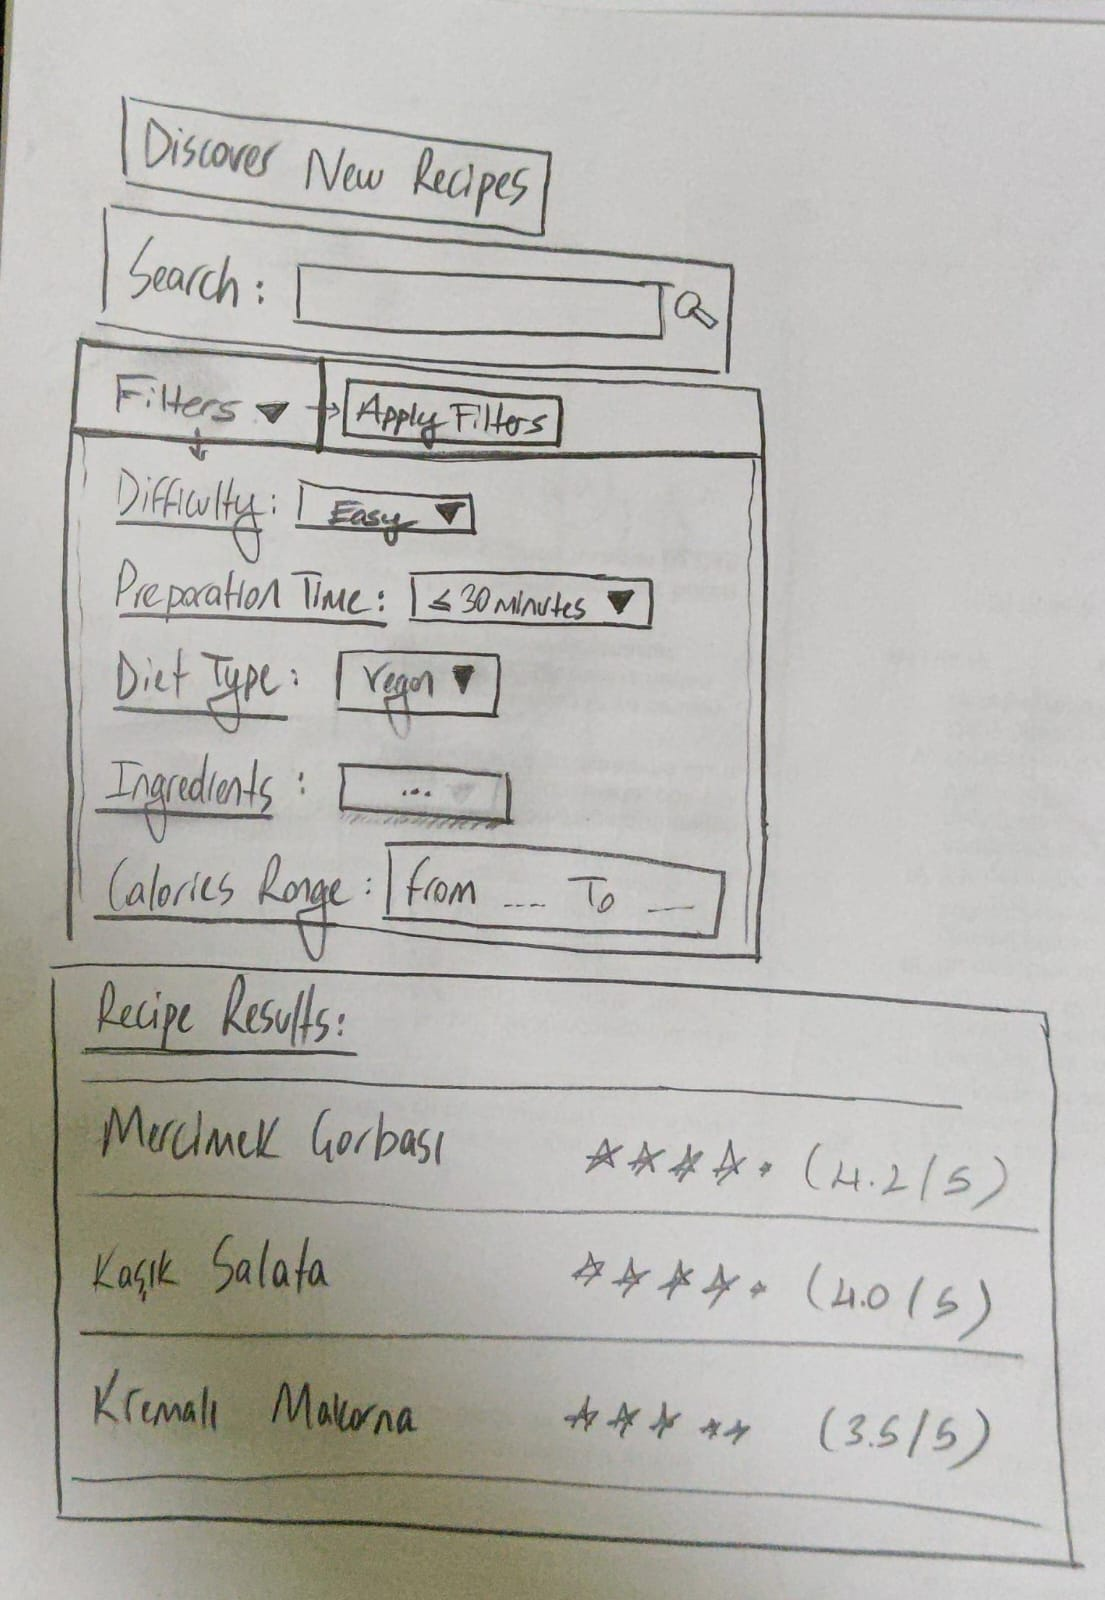 Discover New Recipes
Search:
Filters ▼ → Apply Filters
Difficulty: Easy ▼
Preparation Time: ≤ 30 minutes ▼
Diet Type: Vegan ▼
Ingredients: ...
Calories Range: From ... To __
Recipe Results:
Mercimek Çorbası ★★★★• (4.2/5)
Kaşık Salata ★★★★• (4.0/5)
Kremalı Makarna ★★★★★ (3.5/5)